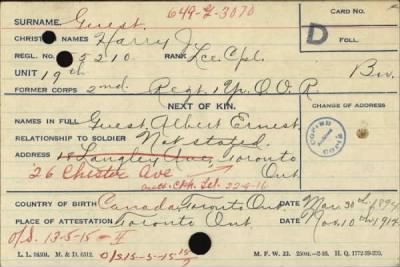 649-G-3070
SURNAME. Guest. CARD NO.
CHRIST NAMES Harry J. D
REGL. NO. 5210 RANK Lce. Cpl. FOLL.
UNIT 19th Bn.
FORMER CORPS 2nd Regt 1 yr. Q.O.R.
NEXT OF KIN. CHANGE OF ADDRESS
NAMES IN FULL Guest Albert Ernest
RELATIONSHIP TO SOLDIER Not stated.
ADDRESS 18 Langley Ave, Toronto
26 Chester Ave Ont
22-9-16
COPIED
COPIÉ
COUNTRY OF BIRTH Canada Toronto Ont DATE Mar. 30th 1894
PLACE OF ATTESTATION Toronto Ont DATE Nov. 10th 1914
O/S. 13-5-15
O/S. 15-5-15
L. L. M. & D. 6512. M. F. W. 22. H. Q. 1772-39-339.